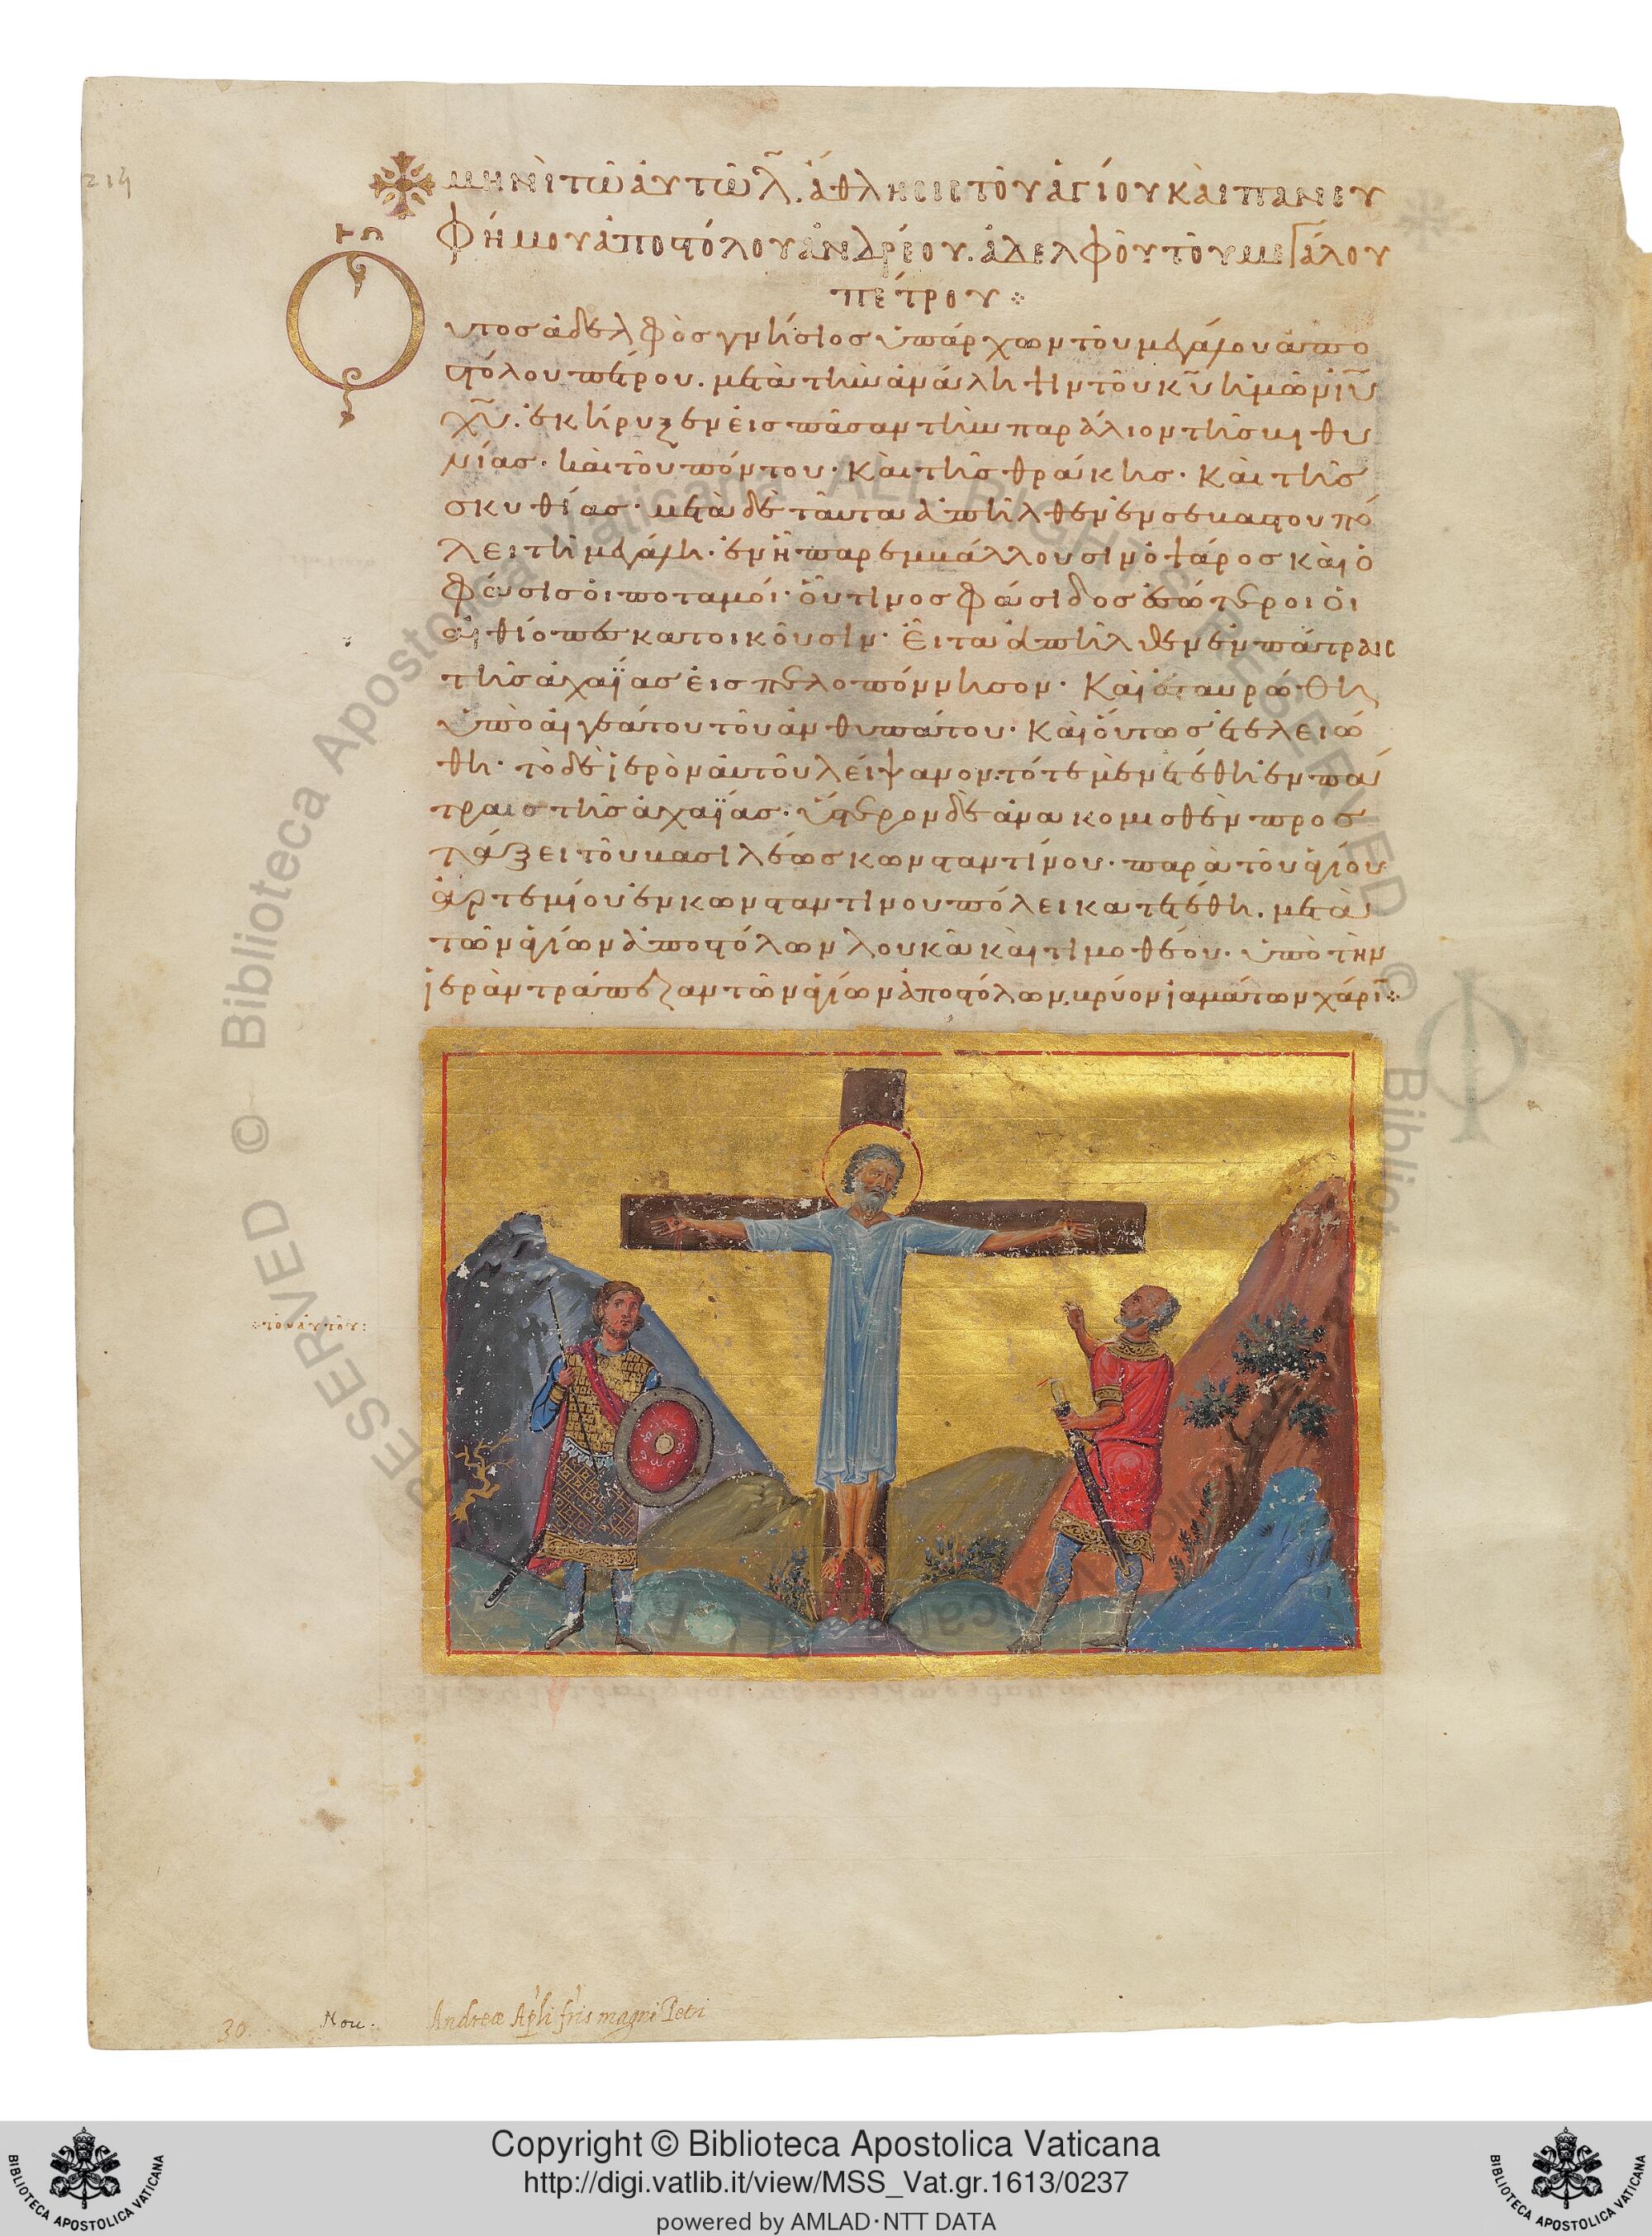 215
ΜΗΝῚ ΤΩ͂ ΑΥΤΩ͂ Λ̅. ἌΘΛΗΣΙΣ ΤΟΥ͂ ἉΓΊΟΥ ΚΑῚ ΠΑΝΕΥ
ΦΉΜΟΥ ἈΠΟϚΌΛΟΥ ἈΝΔΡΈΟΥ. ἈΔΕΛΦΟΥ͂ ΤΟΥ͂ ΜΕΓΆΛΟΥ
ΠΈΤΡΟΥ
Οὗτος ἀδελφὸς γνήσιος ὑπάρχων τοῦ μεγάλου ἀπο
ϛόλου πέτρου. μετὰ τὴν ἀνάληψιν τοῦ κ̅υ̅ ἡμῶν ι̅υ̅
χ̅υ̅. ἐκήρυξεν εἰς πᾶσαν τὴν παράλιον τῆς βιθυ
νίας. καὶ τοῦ πόντου. καὶ τῆς θράκης. καὶ τῆς
σκυθίας. μετὰ δὲ ταῦτα ἀπῆλθεν ἐν σεβαϛουπό
λει τῆ μεγάλη. ἐν ἧ παρεμβάλλουσιν ὁ ψάρος καὶ ὁ
φάσις οἱ ποταμοί. οὗτινος φάσιδος ἐσώτεροι οἱ
αἰθίοπες κατοικοῦσιν. εἶτα ἀπῆλθεν ἐν πάτραις
τῆς ἀχαΐας εἰς πελοπόννησον. καὶ ἐσταυρώθη
ὑπὸ αἰγεάτου τοῦ ἀνθυπάτου. καὶ οὕτως ἐτελειώ
θη. τὸ δὲ ἱερὸν αὐτοῦ λείψανον. τότε μὲν ἐτέθη ἐν πά
τραις τῆς ἀχαΐας. ὕϛερον δὲ ἀνακομισθὲν προσ
τάξει τοῦ βασιλέως κωνϛαντίνου. παρὰ τοῦ ἁγίου
ἀρτεμίου ἐν κωνϛαντίνου πόλει κατετέθη. μετὰ
τῶν ἁγίων ἀποϛόλων λουκᾶ καὶ τιμοθέου. ὑπὸ τὴν
ἱερὰν τράπεζαν τῶν ἁγίων ἀποϛόλων. βρύον ἰαμάτων χάριν
30. Nou. Andreæ Apli fris magni Petri
© Biblioteca Apostolica Vaticana ALL RIGHTS RESERVED
Copyright © Biblioteca Apostolica Vaticana
http://digi.vatlib.it/view/MSS_Vat.gr.1613/0237
powered by AMLAD·NTT DATA
BIBLIOTECA APOSTOLICA VATICANA
BIBLIOTECA APOSTOLICA VATICANA